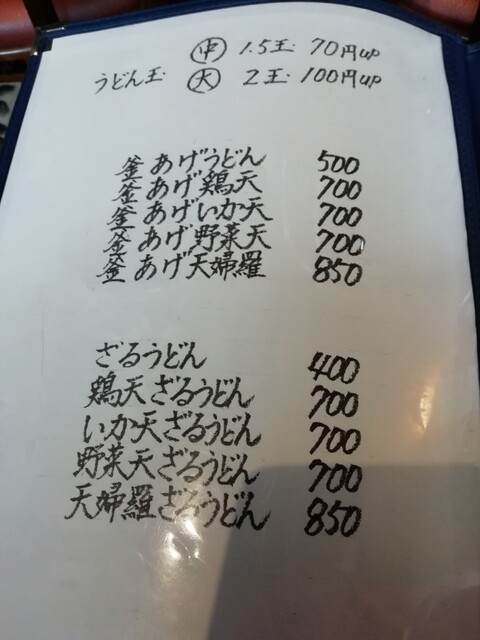 ㊥ 1.5玉 70円up
うどん玉 ㊅ 2玉 100円up
釜あげうどん 500
釜あげ鶏天 700
釜あげいか天 700
釜あげ野菜天 700
釜あげ天婦羅 850
ざるうどん 400
鶏天ざるうどん 700
いか天ざるうどん 700
野菜天ざるうどん 700
天婦羅ざるうどん 850